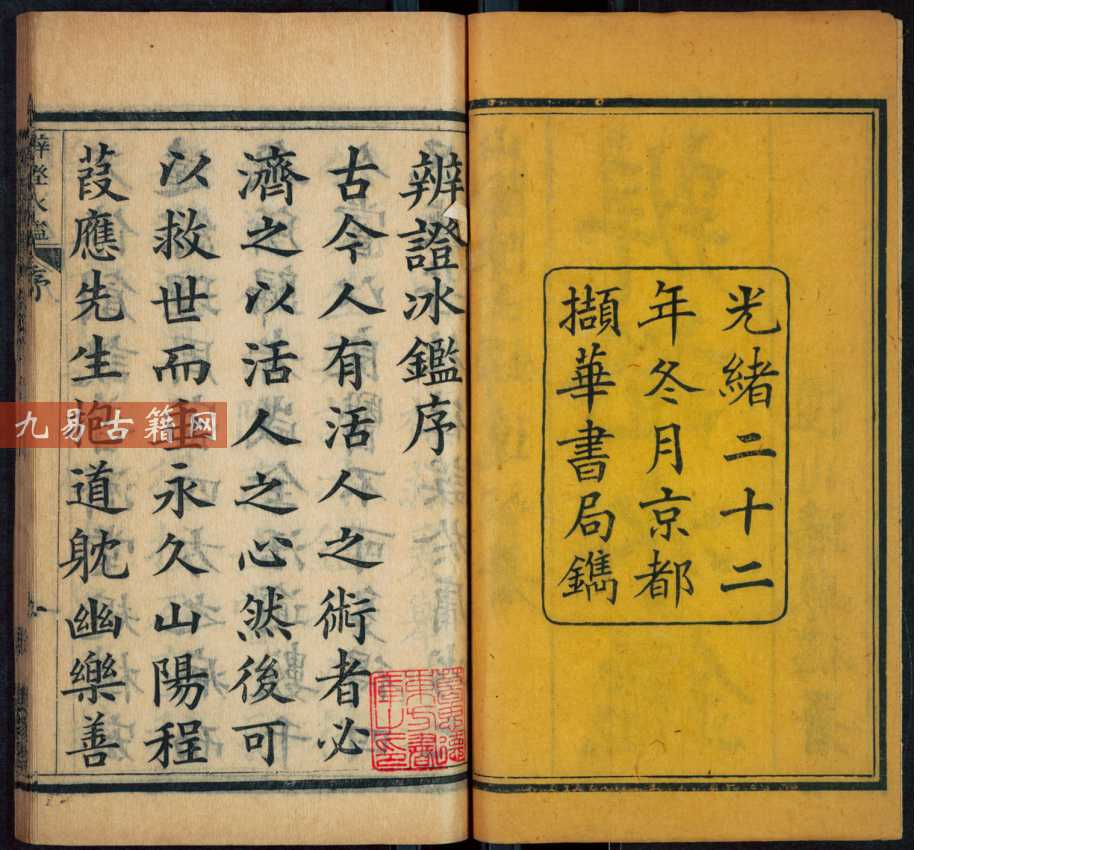 光緒二十二
年冬月京都
擷華書局鐫
辨證冰鑑序
古今人有活人之術者必
濟之以活人之心然後可
以救世而垂永久山陽程
葭應先生抱道躭幽樂善
序
九易古籍网